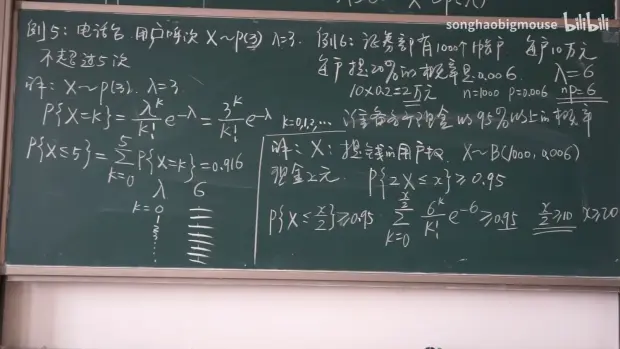 songhaobigmouse bilibili
例5: 电话台 用户呼次 X~P(3) λ=3.
不超过5次
解: X~P(3). λ=3
P{X=k}=λ^k/k! e^-λ = 3^k/k! e^-λ k=0,1,2,…
P{X≤5}=∑_{k=0}^{5} P{X=k}=0.916
λ 6
k=0
1
2
3
例6: 证券部有1000个户 每户10万元
每户提20%的概率是0.006. λ=6
10×0.2=2万元 n=1000 p=0.006 np=6
准备多少现金 以95%以上的概率
解: X: 提钱的用户数. X~B(1000, 0.006)
现金x元. P{2X≤x}≥0.95
P{X≤x/2}≥0.95 ∑_{k=0}^{x/2} 6^k/k! e^-6 ≥0.95 x/2≥10 x≥20